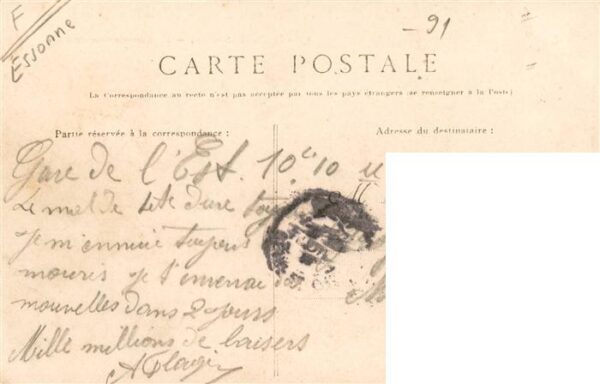 F
Essonne
91
CARTE POSTALE
La Correspondance au recto n'est pas acceptée par tous les pays étrangers (se renseigner à la Poste)
Partie réservée à la correspondance :
Adresse du destinataire :
Gare de l'Est. 10 10
Le mal de tête dure
je m'ennuie toujours
je t'enverrai des
nouvelles dans 2 jours
Mille millions de baisers